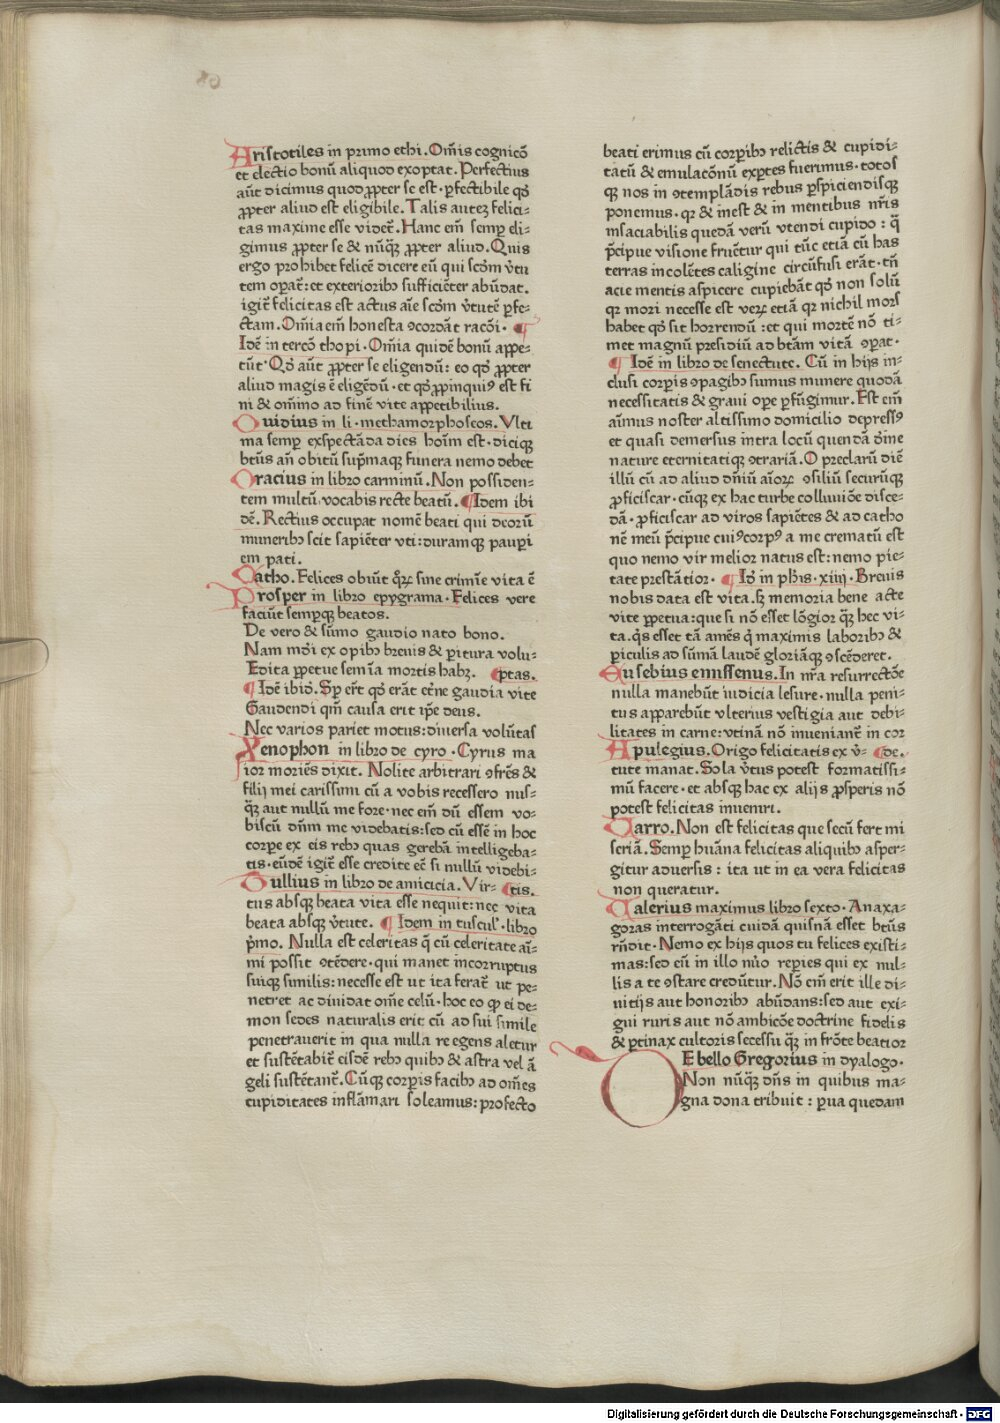 80
Aristotiles in primo ethi. Om̄is cognicō
et electio bonū aliquod exoptat. Perfectius
aūt dicimus quod ꝓpter se est · ꝑfectibile qđ
ꝓpter aliud est eligibile. Talis auteꝫ felici⸗
tas maxime esse videt̄. Hanc em̄ semꝑ eli⸗
gimus ꝓpter se & nūqꝫ ꝓpter aliud. Quis
ergo prohibet felicē dicere eū qui scđm v̄tu
tem oꝑat̄: et exterioribꝰ sufficiēter abūdat.
igit̄ felicitas est actus aīe scđm v̄tutē ꝑfe⸗
ctam. Om̄ia em̄ honesta ꝯcordāt racōi. ¶
Idē in tercō thopi. Om̄ia quidē bonū appe⸗
tūt. Qđ aūt ꝓpter se eligendū: eo qđ ꝓpter
aliud magis ē eligēdū. et qđ ꝓpinquiꝰ est fi
ni & om̄īmo ad finē vite appetibilius.
Ouidius in li. methamorphoseos. Vlti
ma semꝑ exspectāda dies hoīm est. diciqꝫ
bt̄us an̄ obitū sup̄maqꝫ funera nemo debet
Oracius in libro carminū. Non possiden⸗
tem multū vocabis recte beatū. ¶ Idem ibi
dē. Rectius occupat nomē beati qui deorū
muneribꝰ scit sapiēter vti: duramqꝫ pauꝑi
em pati.
Catho. Felices obiūt qrꝫ sine crimīe vita ē
Prosper in libro epygrama. Felices vere
faciūt semꝑqꝫ beatos.
De vero & sūmo gaudio nato bono.
Nam mōi ex opibꝰ breuis & ꝑitura volu⸗
Edita ꝑpetue semīa mortis habꝫ. ¶ptas.
¶ Idē ibiđ. Suꝑ er̄t qđ erāt et̄ne gaudia vite
Gaudendi qm̄ causa erit ip̄e deus.
Nec varios pariet motus: diuersa volūtas
Xenophon in libro de cyro. Cyrus ma
ior moriēs dixit. Nolite arbitrari ꝯfrēs &
filij mei carissimi cū a vobis recessero nus⸗
qꝫ aut nullū me fore. nec em̄ dū essem vo⸗
biscū dn̄m me videbatis: sed cū essē in hoc
corꝑe ex eis rebꝰ quas gerebā intelligeba⸗
tis. eūdē igit̄ esse credite eē si nullū videbi⸗
Tullius in libro de amicicia. Vir⸗ ¶tis.
tus absqꝫ beata vita esse nequit: nec vita
beata absqꝫ v̄tute. ¶ Idem in tuscul. libro
p̄mo. Nulla est celeritas q̄ cū celeritate aī⸗
mi possit ꝯtēdere. qui manet incorruptus
suiqꝫ similis: necesse est ut ita ferat̄ ut pe⸗
netret ac diuidat om̄e celū. hoc eo ꝙ ei de⸗
mon sedes naturalis erit cū ad sui simile
penetrauerit in qua nulla re egens aletur
et sustētabit̄ eisdē rebꝰ quibꝰ & astra vel ā
geli sustētant̄. Cūqꝫ corꝑis facibꝰ ad om̄es
cupiditates inflāmari soleamus: profecto
beati erimus cū corꝑibꝰ relictis & cupidi⸗
tatū & emulacōnū exꝑtes fuerimus. totos
qꝫ nos in ꝯtemplādis rebus ꝑspiciendisqꝫ
ponemus. qꝛ & inest & in mentibus nr̄is
insaciabilis quedā verū vtendi cupido: q̄
p̄cipue visione fruētur qui tūc etiā cū has
terras incolētes caligine circūfusi erāt. tn̄
acie mentis aspicere cupiebāt qđ non solū
qꝛ mori necesse est verꝫ etiā qꝛ nichil mors
habet qđ sit horrendū: et qui mortē nō ti⸗
met magnū presidiū ad btām vitā ꝯꝑat.
¶ Idē in libro de senectute. Cū in hijs in⸗
clusi corꝑis ꝯpagibꝰ sumus munere quodā
necessitatis & graui oꝑe ꝑfūgimur. Est em̄
aīmus noster altissimo domicilio depressꝰ
et quasi demersus intra locū quendā dīne
nature eternitatiqꝫ ꝯtrariā. O preclarū diē
illū cū ad aliud dīniū aīorꝫ ꝯsiliū securūqꝫ
ꝓficiscar. cūqꝫ ex hac turbe colluuiōe disce⸗
dā. ꝓficiscar ad viros sapiētes & ad catho
nē meū p̄cipue cuiꝰ corpꝰ a me crematū est
quo nemo vir melior natus est: nemo pie⸗
tate prestātior. ¶ Iđ in pħis. xiiij. Breuis
nobis data est vita. sꝫ memoria bene acte
vite ꝑpetua: que si nō esset lōgior qꝫ hec vi⸗
ta. qs esset tā amēs q̄ maximis laboribꝰ &
ꝑiculis ad sūmā laudē gloriāqꝫ ꝯscēderet.
Eusebius emissenus. In nr̄a resurrectōe
nulla manebūt iudicia lesure. nulla peni⸗
tus apparebūt vlterius vestigia aut debi⸗
litates in carne: vtinā nō inueniant̄ in cor
Apulegius. Origo felicitatis ex v̄⸗ ¶de.
tute manat. Sola v̄tus potest formatissi⸗
mū facere. et absqꝫ hac ex alijs ꝓsperis nō
potest felicitas inueniri.
Varro. Non est felicitas que secū fert mi
seriā. Semꝑ huāna felicitas aliquibꝰ asper⸗
gitur aduersis: ita ut in ea vera felicitas
non queratur.
Valerius maximus libro sexto. Anaxa⸗
goras interrogāti cuidā quisnā esset bt̄us
rn̄dit. Nemo ex hijs quos tu felices existi⸗
mas: sed cū in illo nūo reꝑies qui ex nul⸗
lis a te ꝯstare credūtur. Nō em̄ erit ille di⸗
uitijs aut honoribꝰ abūdans: sed aut exi⸗
gui ruris aut nō ambicōe doctrine fidelis
& ꝑtinax cultoris secessu qꝫ in frōte beatior
DE bello Gregorius in dyalogo.
Non nūqꝫ dn̄s in quibus ma⸗
gna dona tribuit: ꝑua quedam
Digitalisierung gefördert durch die Deutsche Forschungsgemeinschaft - DFG